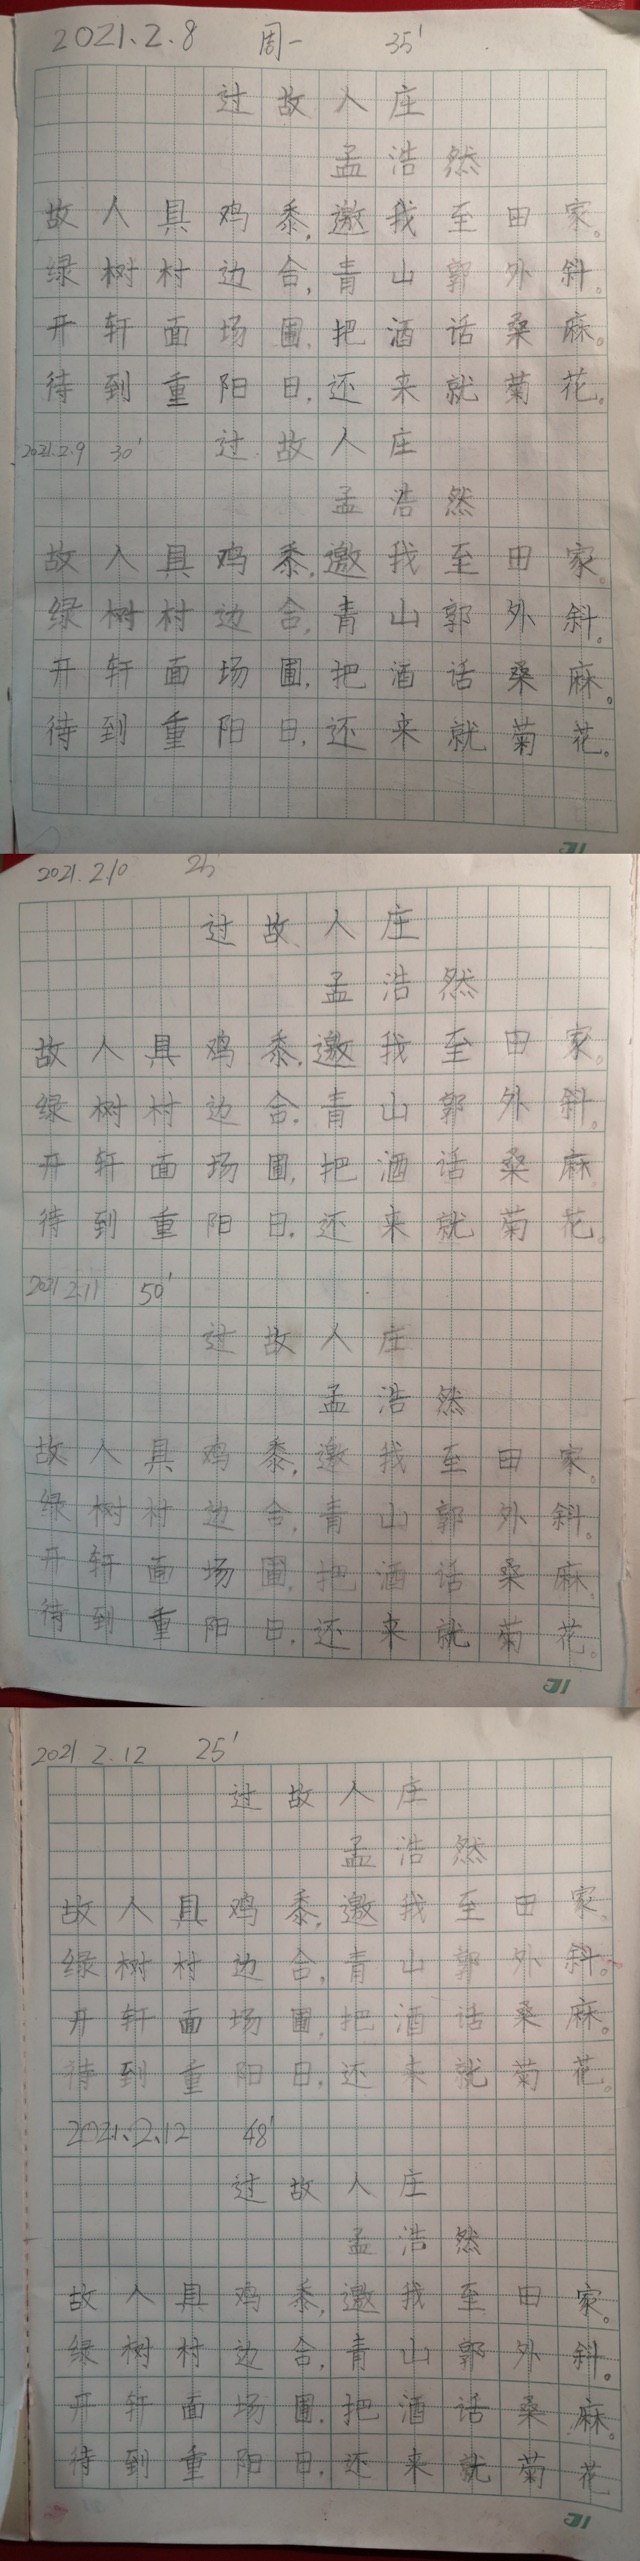 2021.2.8 周一 35'
过故人庄
孟浩然
故人具鸡黍,邀我至田家。
绿树村边合,青山郭外斜。
开轩面场圃,把酒话桑麻。
待到重阳日,还来就菊花。
2021.2.9 30' 过故人庄
孟浩然
故人具鸡黍,邀我至田家。
绿树村边合,青山郭外斜。
开轩面场圃,把酒话桑麻。
待到重阳日,还来就菊花。
2021.2.10 25'
过故人庄
孟浩然
故人具鸡黍,邀我至田家。
绿树村边合,青山郭外斜。
开轩面场圃,把酒话桑麻
待到重阳日,还来就菊花。
2021 2.11 50'
过故人庄
孟浩然
故人具鸡黍,邀我至田家。
绿树村边合,青山郭外斜。
开轩面场圃,把酒话桑麻。
待到重阳日,还来就菊花。
2021 2.12 25'
过故人庄
孟浩然
故人具鸡黍,邀我至田家。
绿树村边合,青山郭外斜。
开轩面场圃,把酒话桑麻。
待到重阳日,还来就菊花。
2021.2.12 48'
过故人庄
孟浩然
故人具鸡黍,邀我至田家。
绿树村边合,青山郭外斜。
开轩面场圃,把酒话桑麻。
待到重阳日,还来就菊花